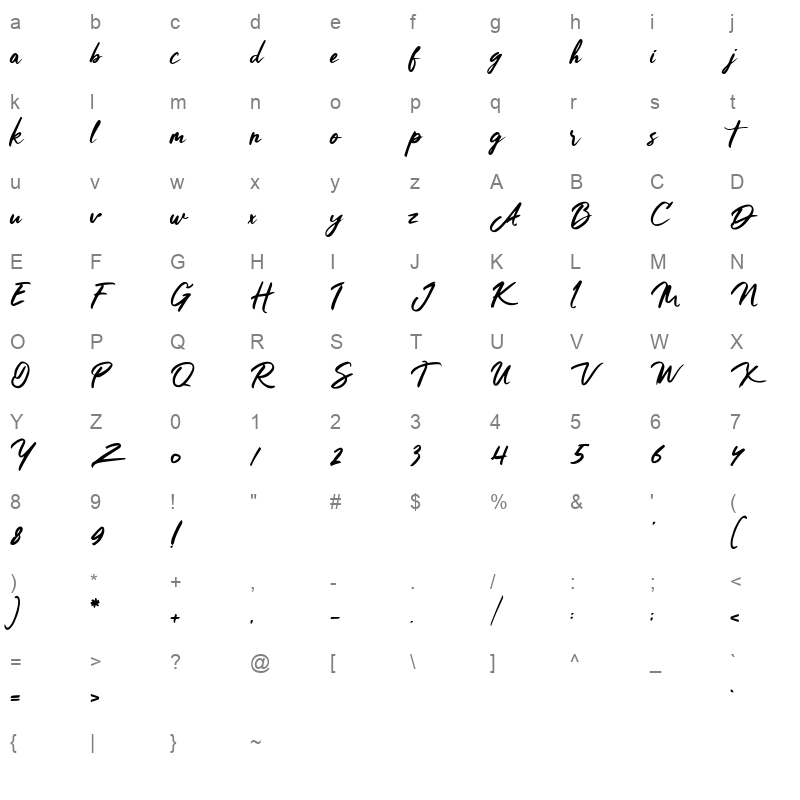 a b c d e f g h i j
a b c d e f g h i j
k l m n o p q r s t
k l m n o p q r s t
u v w x y z A B C D
u v w x y z A B C D
E F G H I J K L M N
E F G H I J K L M N
O P Q R S T U V W X
O P Q R S T U V W X
Y Z 0 1 2 3 4 5 6 7
Y Z 0 1 2 3 4 5 6 7
8 9 ! " # $ % & ' (
8 9 ! ' (
) * + , - . / : ; <
) * + , - . / : ; <
= > ? @ [ \ ] ^ _ `
= > `
{ | } ~